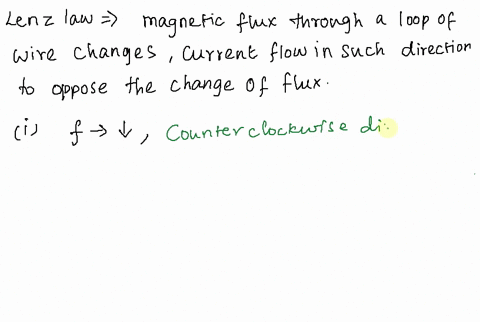 Lenz law => magnetic flux through a loop of
wire changes, current flow in such direction
to oppose the change of flux.
(i) f → ↓, Counterclockwise di